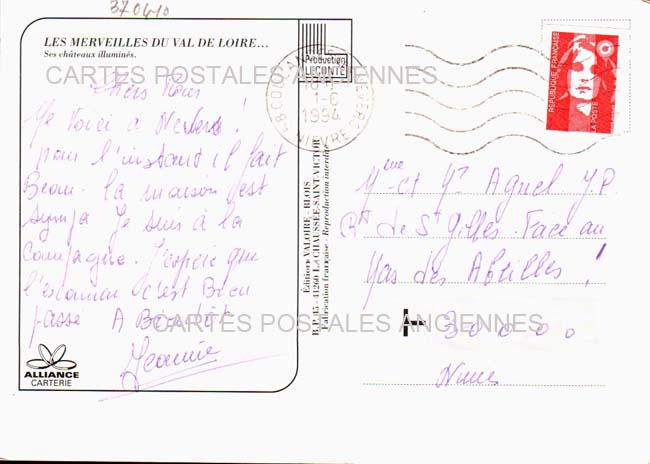 370410
LES MERVEILLES DU VAL DE LOIRE...
Ses châteaux illuminés.
Production
LECONTE
1-6
1994
NIEVRE
REPUBLIQUE FRANÇAISE
LA POSTE
CARTES POSTALES ANCIENNES
Chers Tous
Me voici à Nevers!
pour l'instant il fait
Beau. la maison est
sympa Je suis à la
Campagne. J'espère que
l'examen c'est Bien
passé A Bientôt
Jeannie
Éditions VALOIRE - BLOIS
B.P. 45 - 41260 LA CHAUSSÉE-SAINT-VICTOR
Fabrication française - Reproduction interdite
Mme et Mr Agnel J.P
Rte de St Gilles. Face au
Mas des Abeilles!
30000
Nimes
CARTES POSTALES ANCIENNES
ALLIANCE
CARTERIE